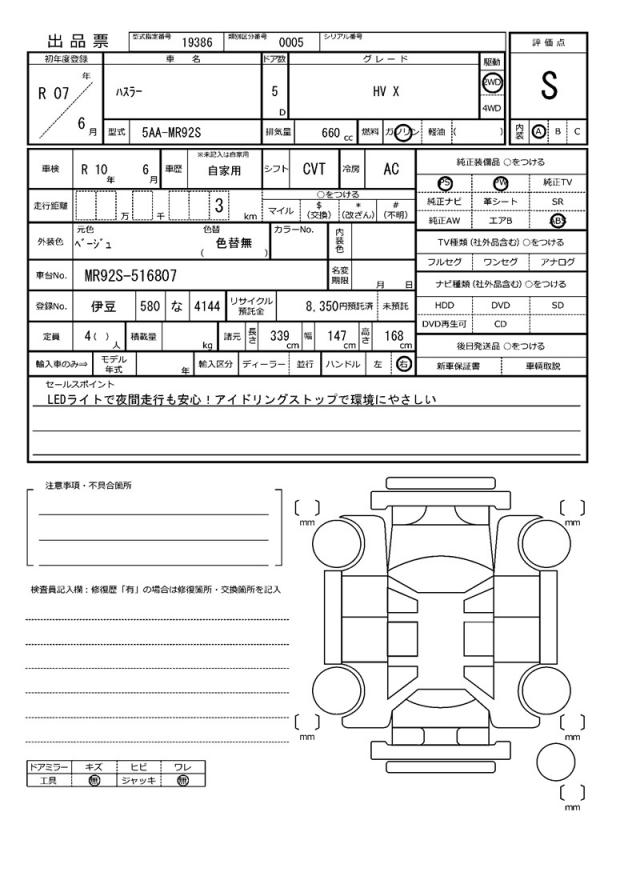 出品票
型式指定番号 19386 類別区分番号 0005 シリアル番号
評価点
初年度登録 車名 ドア数 グレード 駆動
R 07 年 6 月
ハスラー
5 D
HV X
2WD
4WD
S
型式 5AA-MR92S 排気量 660 cc 燃料 ガソリン 軽油 ( )
内装 A B C
車検 R 10 年 6 月 車歴 ※未記入は自家用 自家用 シフト CVT 冷房 AC
純正装備品 ○をつける
PS PW 純正TV
純正ナビ 革シート SR
純正AW エアB ABS
走行距離 万 千 3 km
○をつける
マイル $(交換) *(改ざん) #(不明)
外装色 元色 ベージュ 色替 色替無 ( ) カラーNo. 内装色
TV種類(社外品含む)○をつける
フルセグ ワンセグ アナログ
車台No. MR92S-516807 名変期限 月 日
ナビ種類(社外品含む)○をつける
HDD DVD SD
DVD再生可 CD
登録No. 伊豆 580 な 4144 リサイクル預託金 8,350円預託済 未預託
定員 4( )人 積載量 kg 諸元 長さ 339 cm 幅 147 cm 高さ 168 cm
後日発送品 ○をつける
新車保証書 車輌取説
輸入車のみ⇒ モデル年式 年 輸入区分 ディーラー 並行 ハンドル 左 右
セールスポイント
LEDライトで夜間走行も安心!アイドリングストップで環境にやさしい
注意事項・不具合箇所
検査員記入欄:修復歴「有」の場合は修復箇所・交換箇所を記入
mm
mm
mm
mm
mm
ドアミラー キズ ヒビ ワレ
工具 無 ジャッキ 無